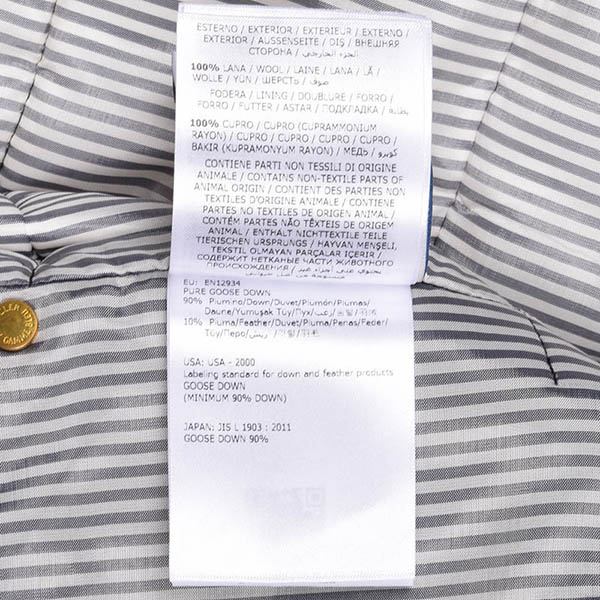 ESTERNO / EXTERIOR / EXTERIEUR / EXTERNO /
EXTERIOR / AUSSENSEITE / DIŞ / ВНЕШНЯЯ
СТОРОНА / الجزء الخارجي
100% LANA / WOOL / LAINE / LANA / LÃ /
WOLLE / YÜN / ШЕРСТЬ / صوف
FODERA / LINING / DOUBLURE / FORRO /
FORRO / FUTTER / ASTAR / ПОДКЛАДКА / بطانة
100% CUPRO / CUPRO (CUPRAMMONIUM
RAYON) / CUPRO / CUPRO / CUPRO / CUPRO /
BAKIR (KUPRAMONYUM RAYON) / МЕДЬ / كوبرو
CONTIENE PARTI NON TESSILI DI ORIGINE
ANIMALE / CONTAINS NON-TEXTILE PARTS OF
ANIMAL ORIGIN / CONTIENT DES PARTIES NON
TEXTILES D'ORIGINE ANIMALE / CONTIENE
PARTES NO TEXTILES DE ORIGEN ANIMAL /
CONTÉM PARTES NÃO TÊXTEIS DE ORIGEM
ANIMAL / ENTHÄLT NICHTTEXTILE TEILE
TIERISCHEN URSPRUNGS / HAYVAN MENŞELİ,
TEKSTİL OLMAYAN PARÇALAR İÇERİR /
СОДЕРЖИТ НЕТКАНЫЕ ЧАСТИ ЖИВОТНОГО
ПРОИСХОЖДЕНИЯ / يحتوي على أجزاء غير
من أصل حيواني
EU: EN12934
PURE GOOSE DOWN
90% Piumino/Down/Duvet/Plumón/Plumas/
Daune/Yumuşak Tüy/Пух/زغب/
10% Piuma/Feather/Duvet/Pluma/Penas/Feder/
Tüy/Перо/ريش/
USA: USA - 2000
Labeling standard for down and feather products
GOOSE DOWN
(MINIMUM 90% DOWN)
JAPAN: JIS L 1903 : 2011
GOOSE DOWN 90%